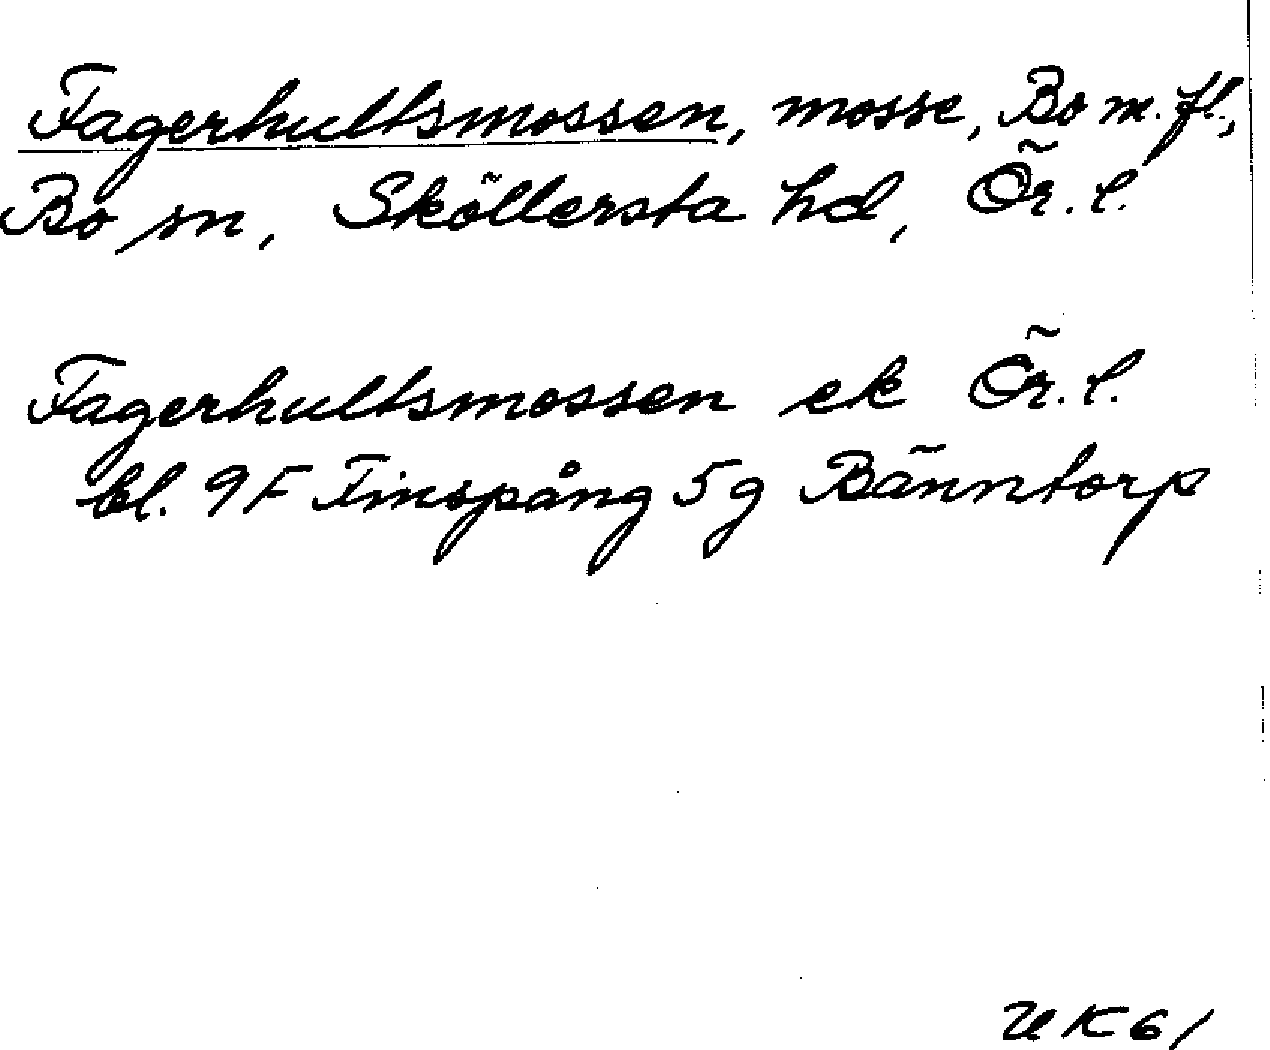 Fagerhultsmossen, mosse, Bo m. fl.,
Bo sn, Sköllersta hd, Ör. l.
Fagerhultsmossen ek Ör. l.
bl. 9F Finspång 5g Bänntorp
UK61